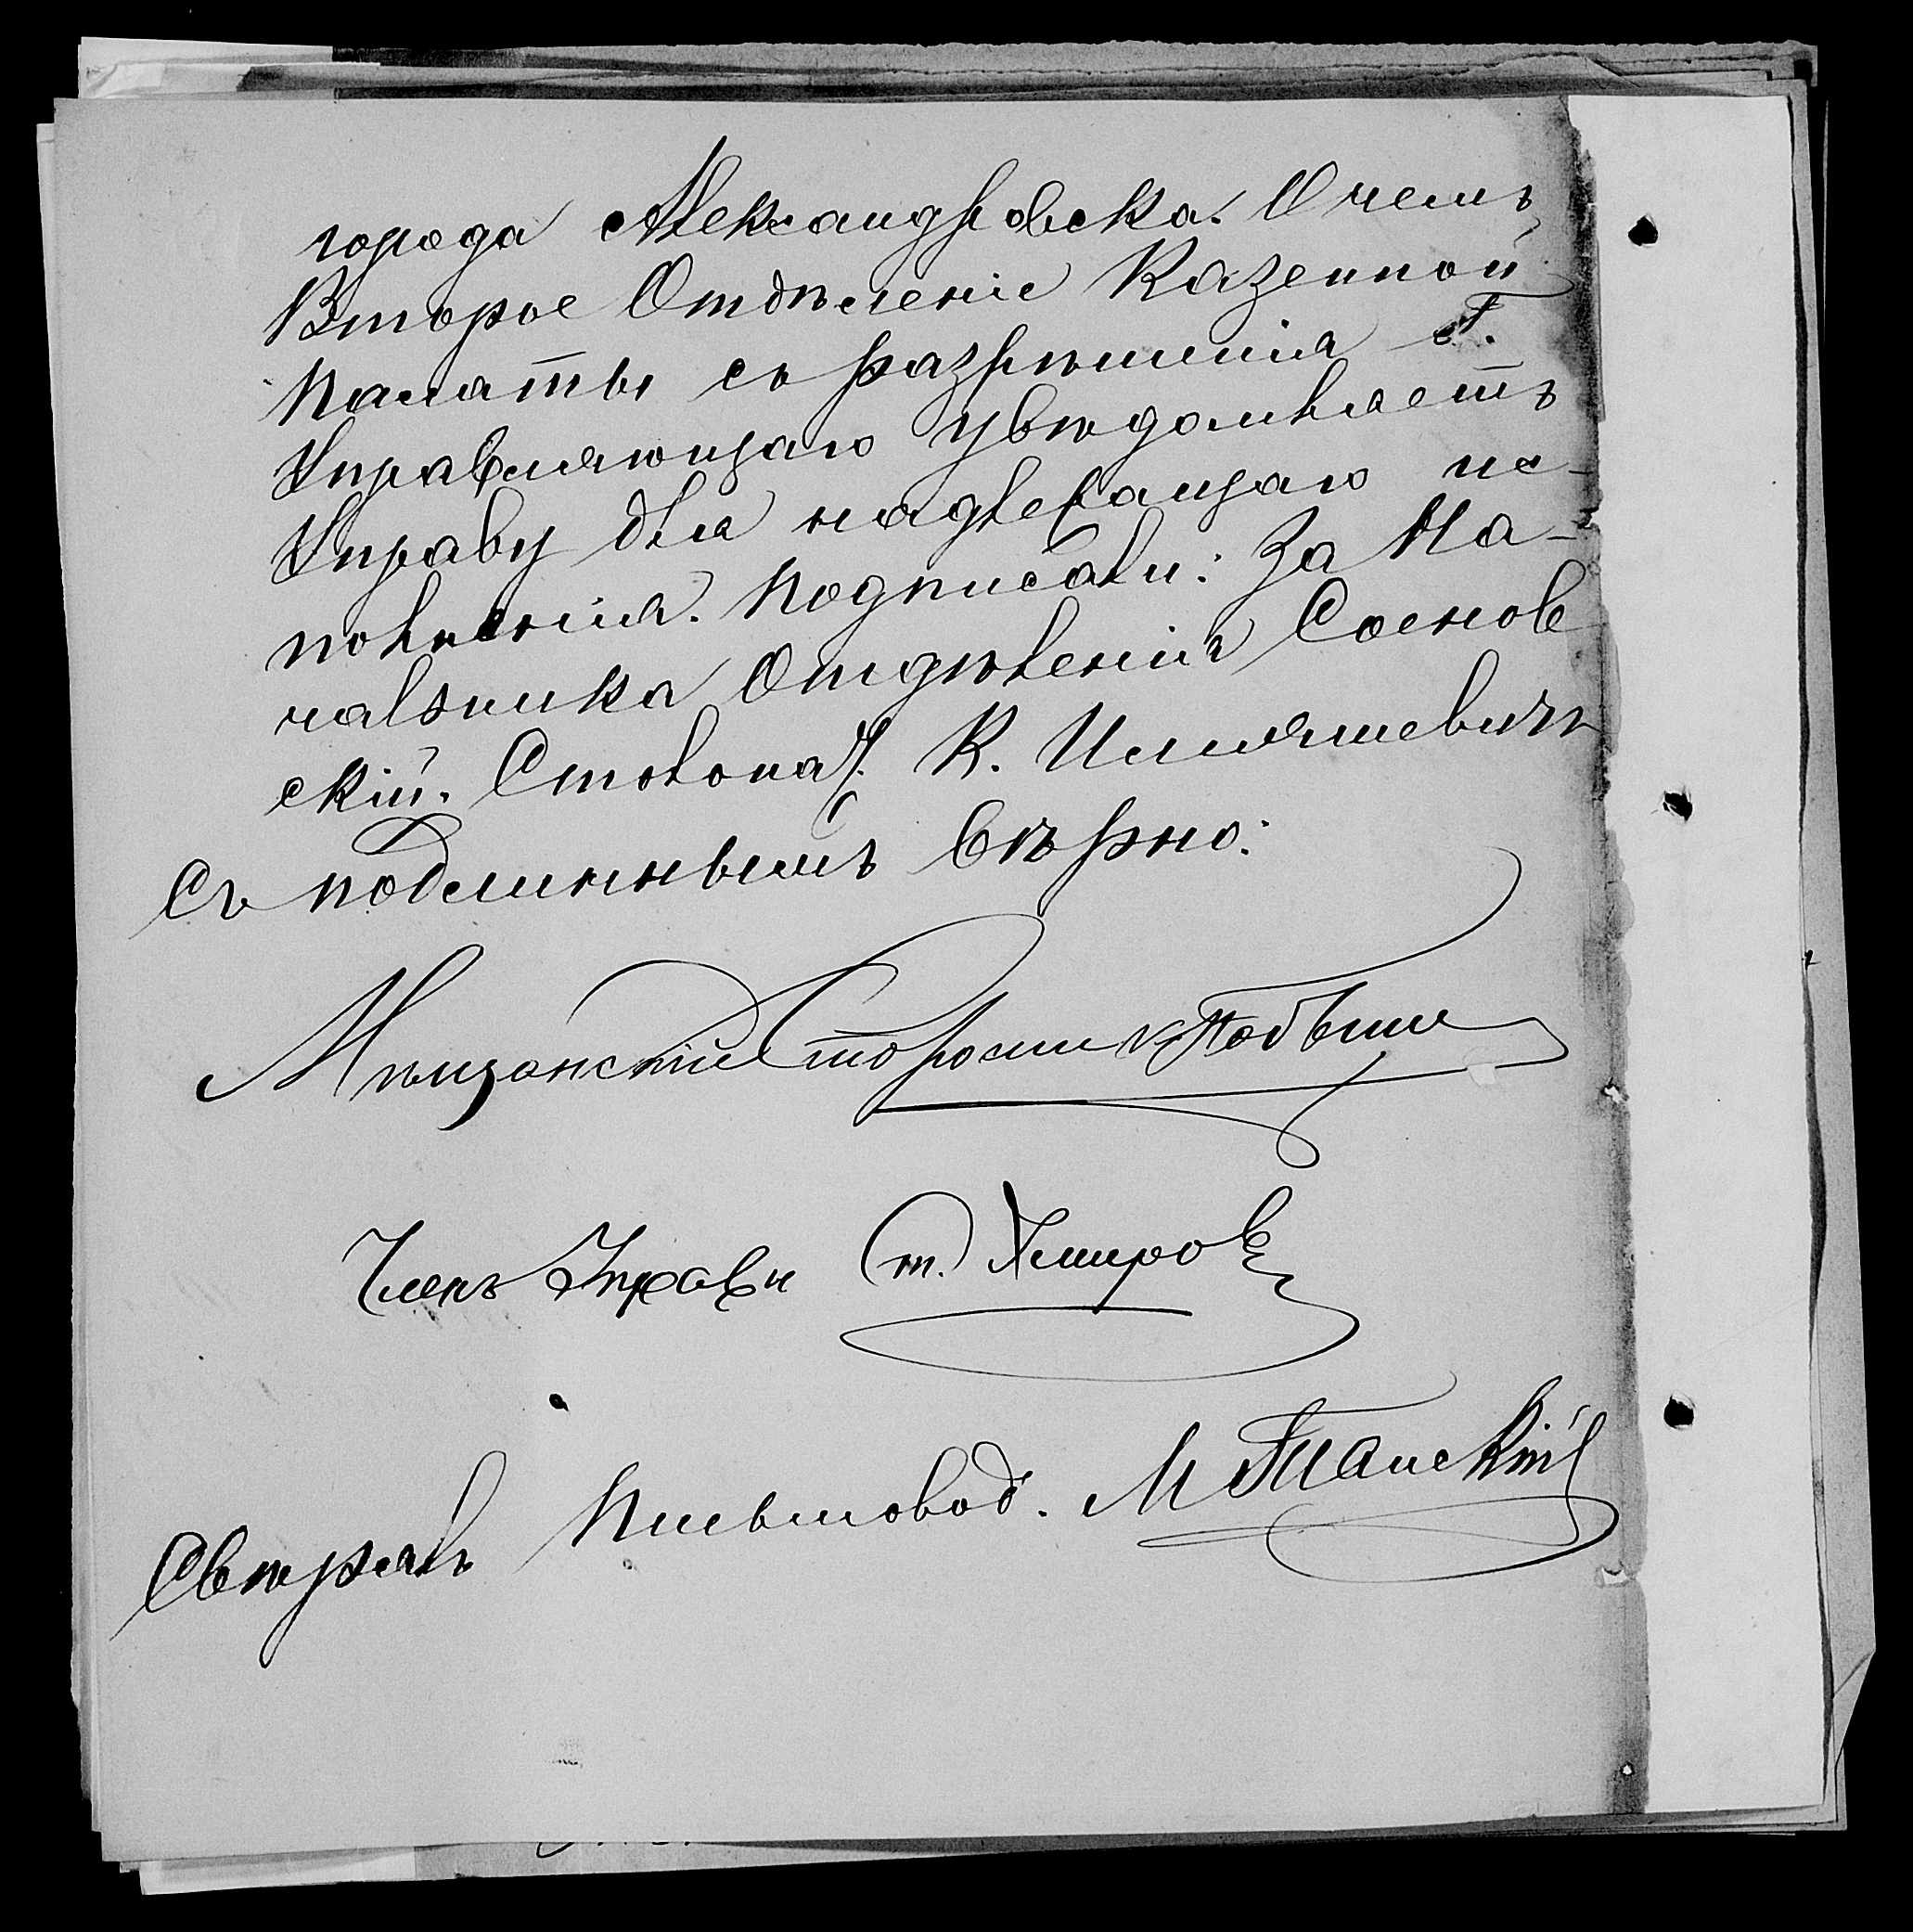 города Александровска. О чемъ
Второе Отдѣленіе Казенной
Палаты съ разрѣшенія Г.
Управляющаго увѣдомляетъ
Управу для надлежащаго ис-
полненія. Подписали: За На-
чальника Отдѣленія Соснов
скій. Столонач. К. Ильяшевичъ
Съ подлиннымъ вѣрно:
Мѣщанскій Староста
Членъ Управы
Письмовод. М
Свѣрялъ